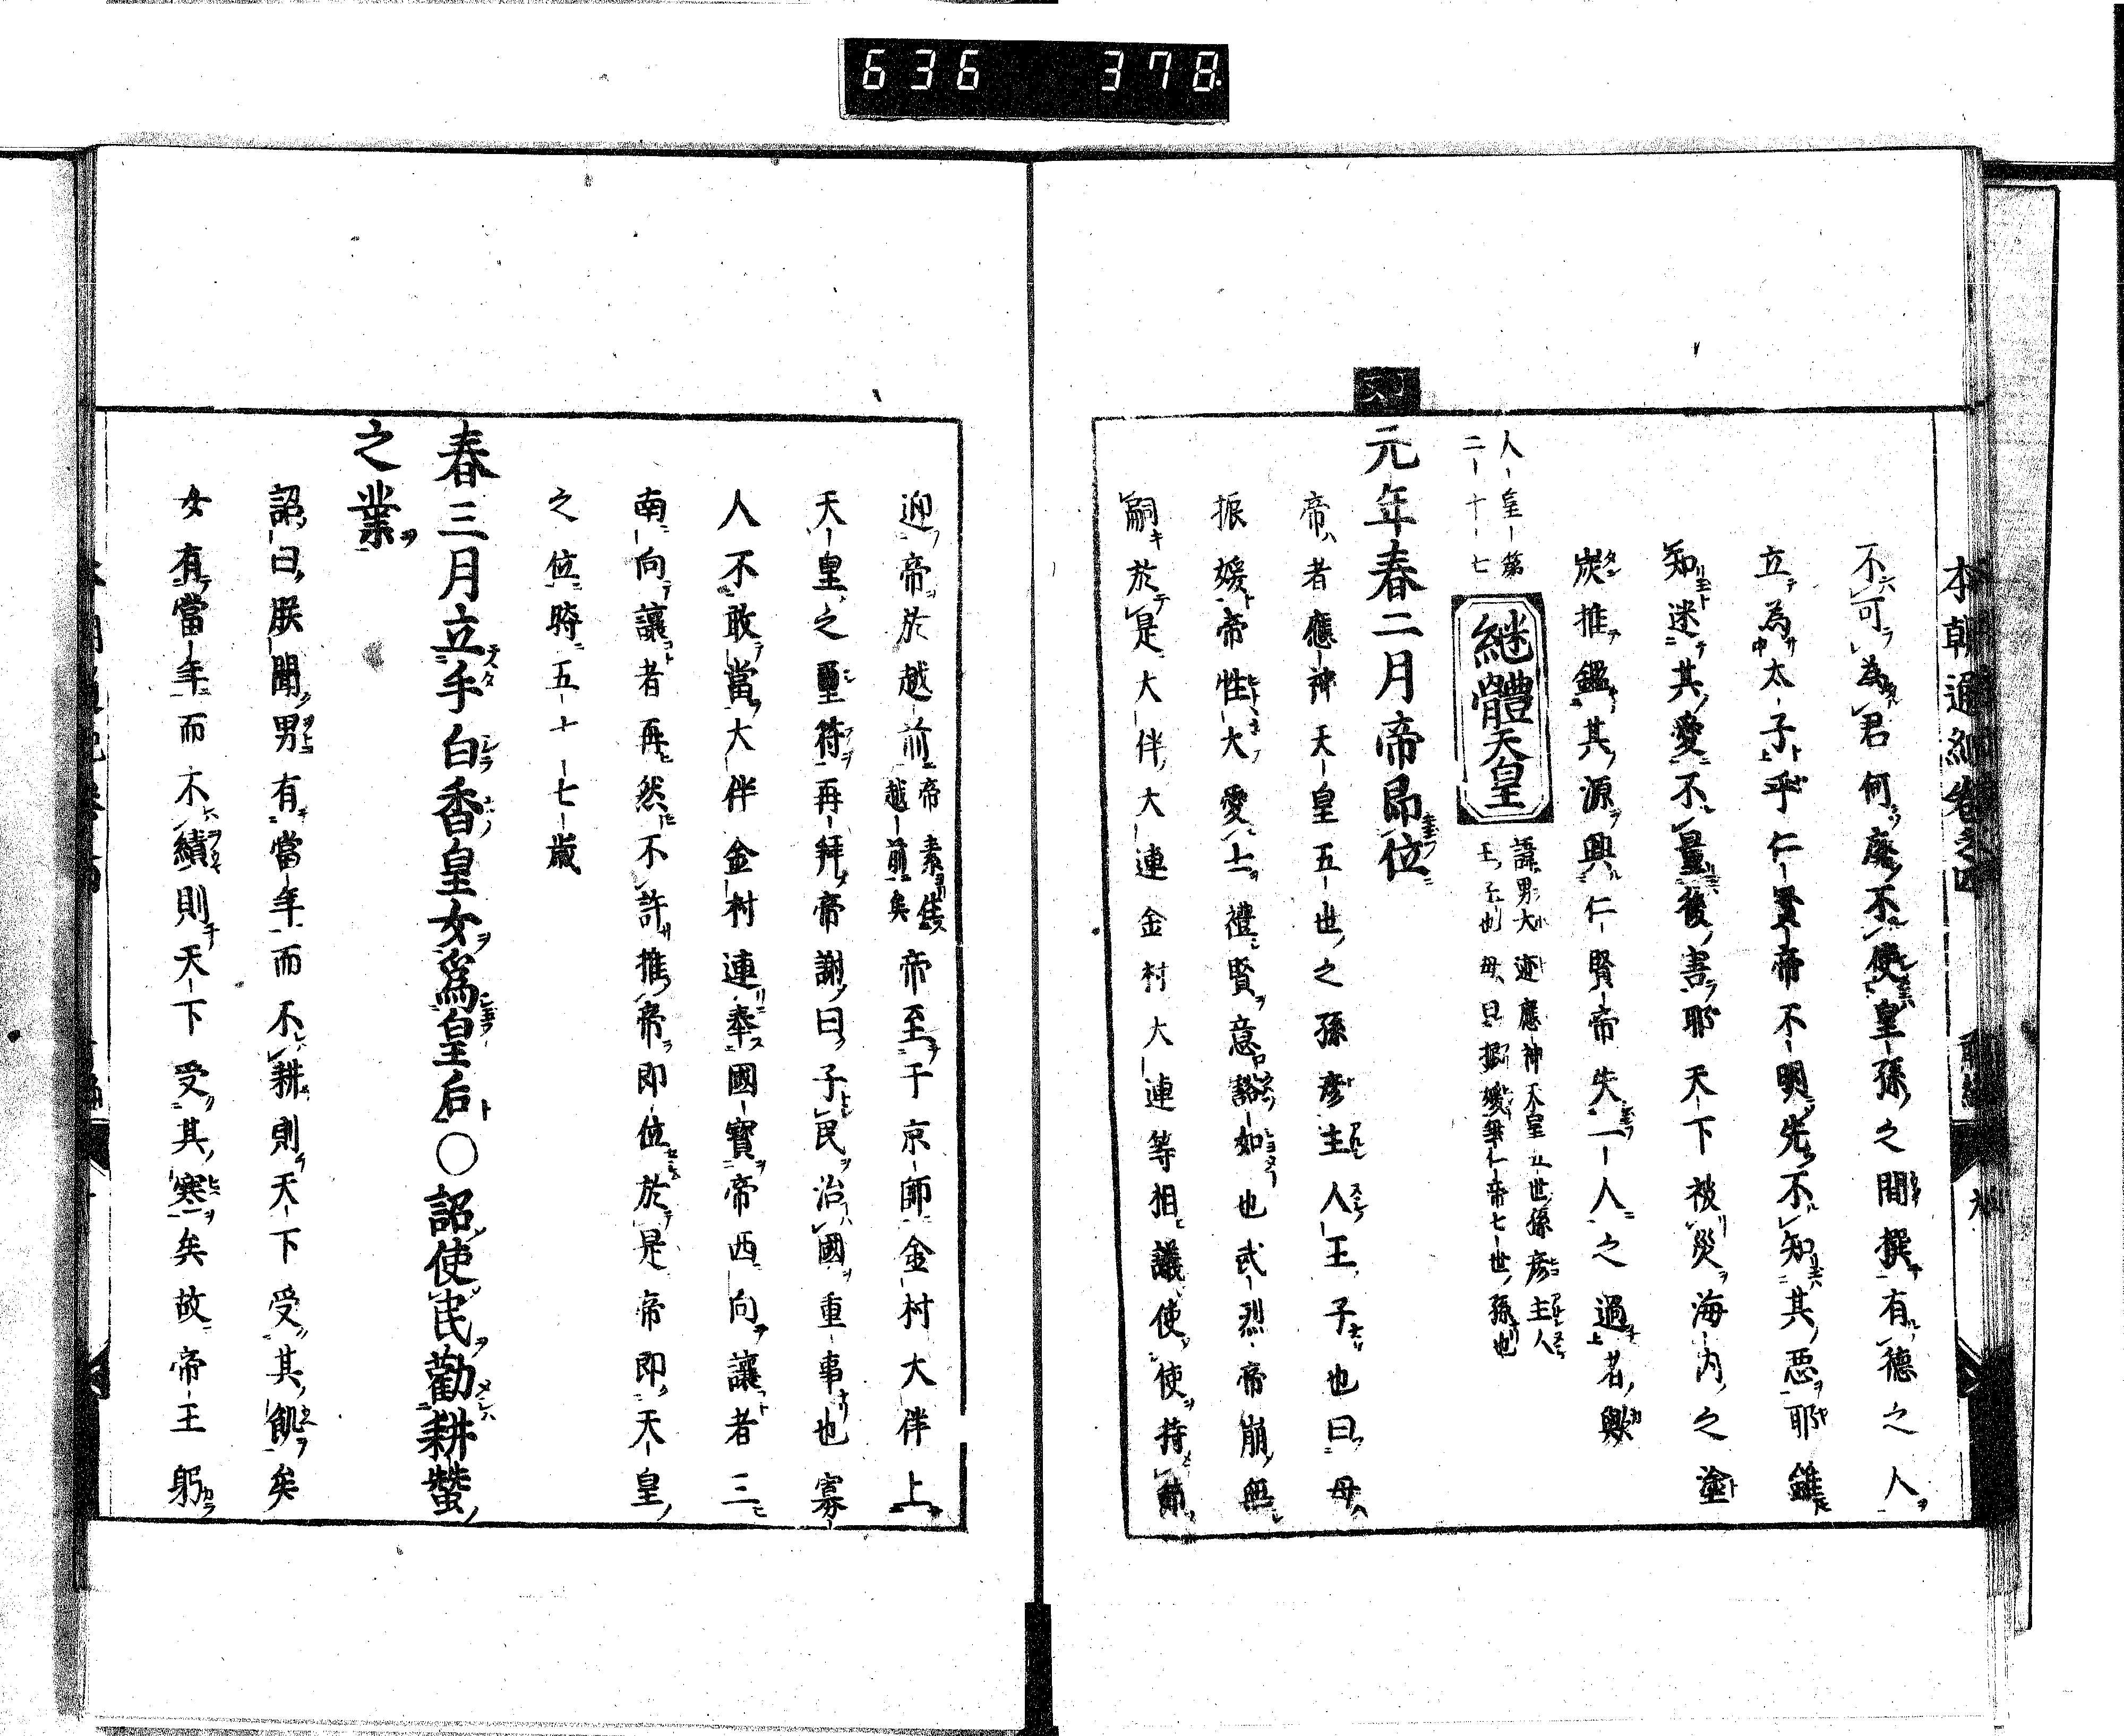 636 378
本朝通紀卷之四 前編
不可為君何廢不使皇孫之間撰有德之人
立為太子乎仁賢帝不明先不知其惡耶雖
知迷其愛不量後害耶天下被災海内之塗
炭推鑑其源興仁賢帝失一人之過者歟
人皇第
二十七
繼體天皇
諱男大迹應神天皇五世孫彦主人
王子也母曰振媛垂仁帝七世孫也
元年春二月帝即位
帝者應神天皇五世之孫彦主人王子也曰母
振媛帝性大愛士禮賢意豁如也武烈帝崩無
嗣於是大伴大連金村大連等相議使使持節
迎帝於越前
帝素住
越前矣
帝至于京師金村大伴上
天皇之璽符再拜帝謝曰子民治國重事也寡
人不敢當大伴金村連奉國寳帝西向讓者三
南向讓者再然不許推帝即位於是帝即天皇
之位時五十七歳
春三月立手白香皇女爲皇后○詔使民勸耕蠶
之業
詔曰朕聞男有當年而不耕則天下受其飢矣
女有當年而不績則天下受其寒矣故帝王躬